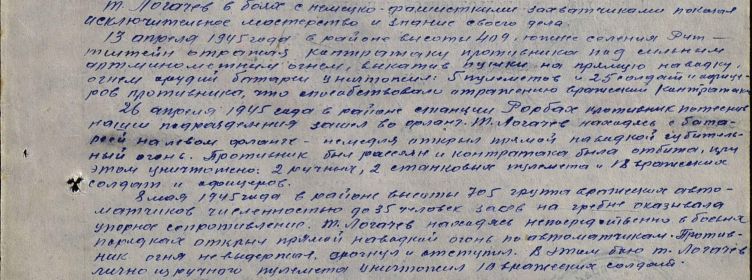 т. Логачев в боях с немецко-фашистскими захватчиками показал
исключительное мастерство и знание своего дела.
13 апреля 1945 года в районе высоты 409, южнее селения Рит-
тштейн отражая контратаку противника под сильным
артминометным огнем, выкатив пушки на прямую наводку,
огнем орудий батареи уничтожил: 5 пулеметов и 25 солдат и офице-
ров противника, что способствовали отражению вражеской контратаки
26 апреля 1945 года в районе станции Форбах противник потеснив
наши подразделения зашел во фланг. т. Логачев находясь с бата-
реей на левом фланге - немедля открыл прямой наводкой губитель-
ный огонь. Противник был рассеян и контратака была отбита, при
этом уничтожено: 2 ручных, 2 станковых пулемета и 18 вражеских
солдат и офицеров.
8 мая 1945 года в районе высоты 705 группа вражеских авто-
матчиков численностью до 35 человек засев на гребне оказывала
упорное сопротивление. т. Логачев находясь непосредственно в боевых
порядках открыл прямой наводкой огонь по автоматчикам. Против-
ник огня не выдержал, дрогнул и отступил. В этом бою т. Логачев
лично из ручного пулемета уничтожил 10 вражеских солдат.